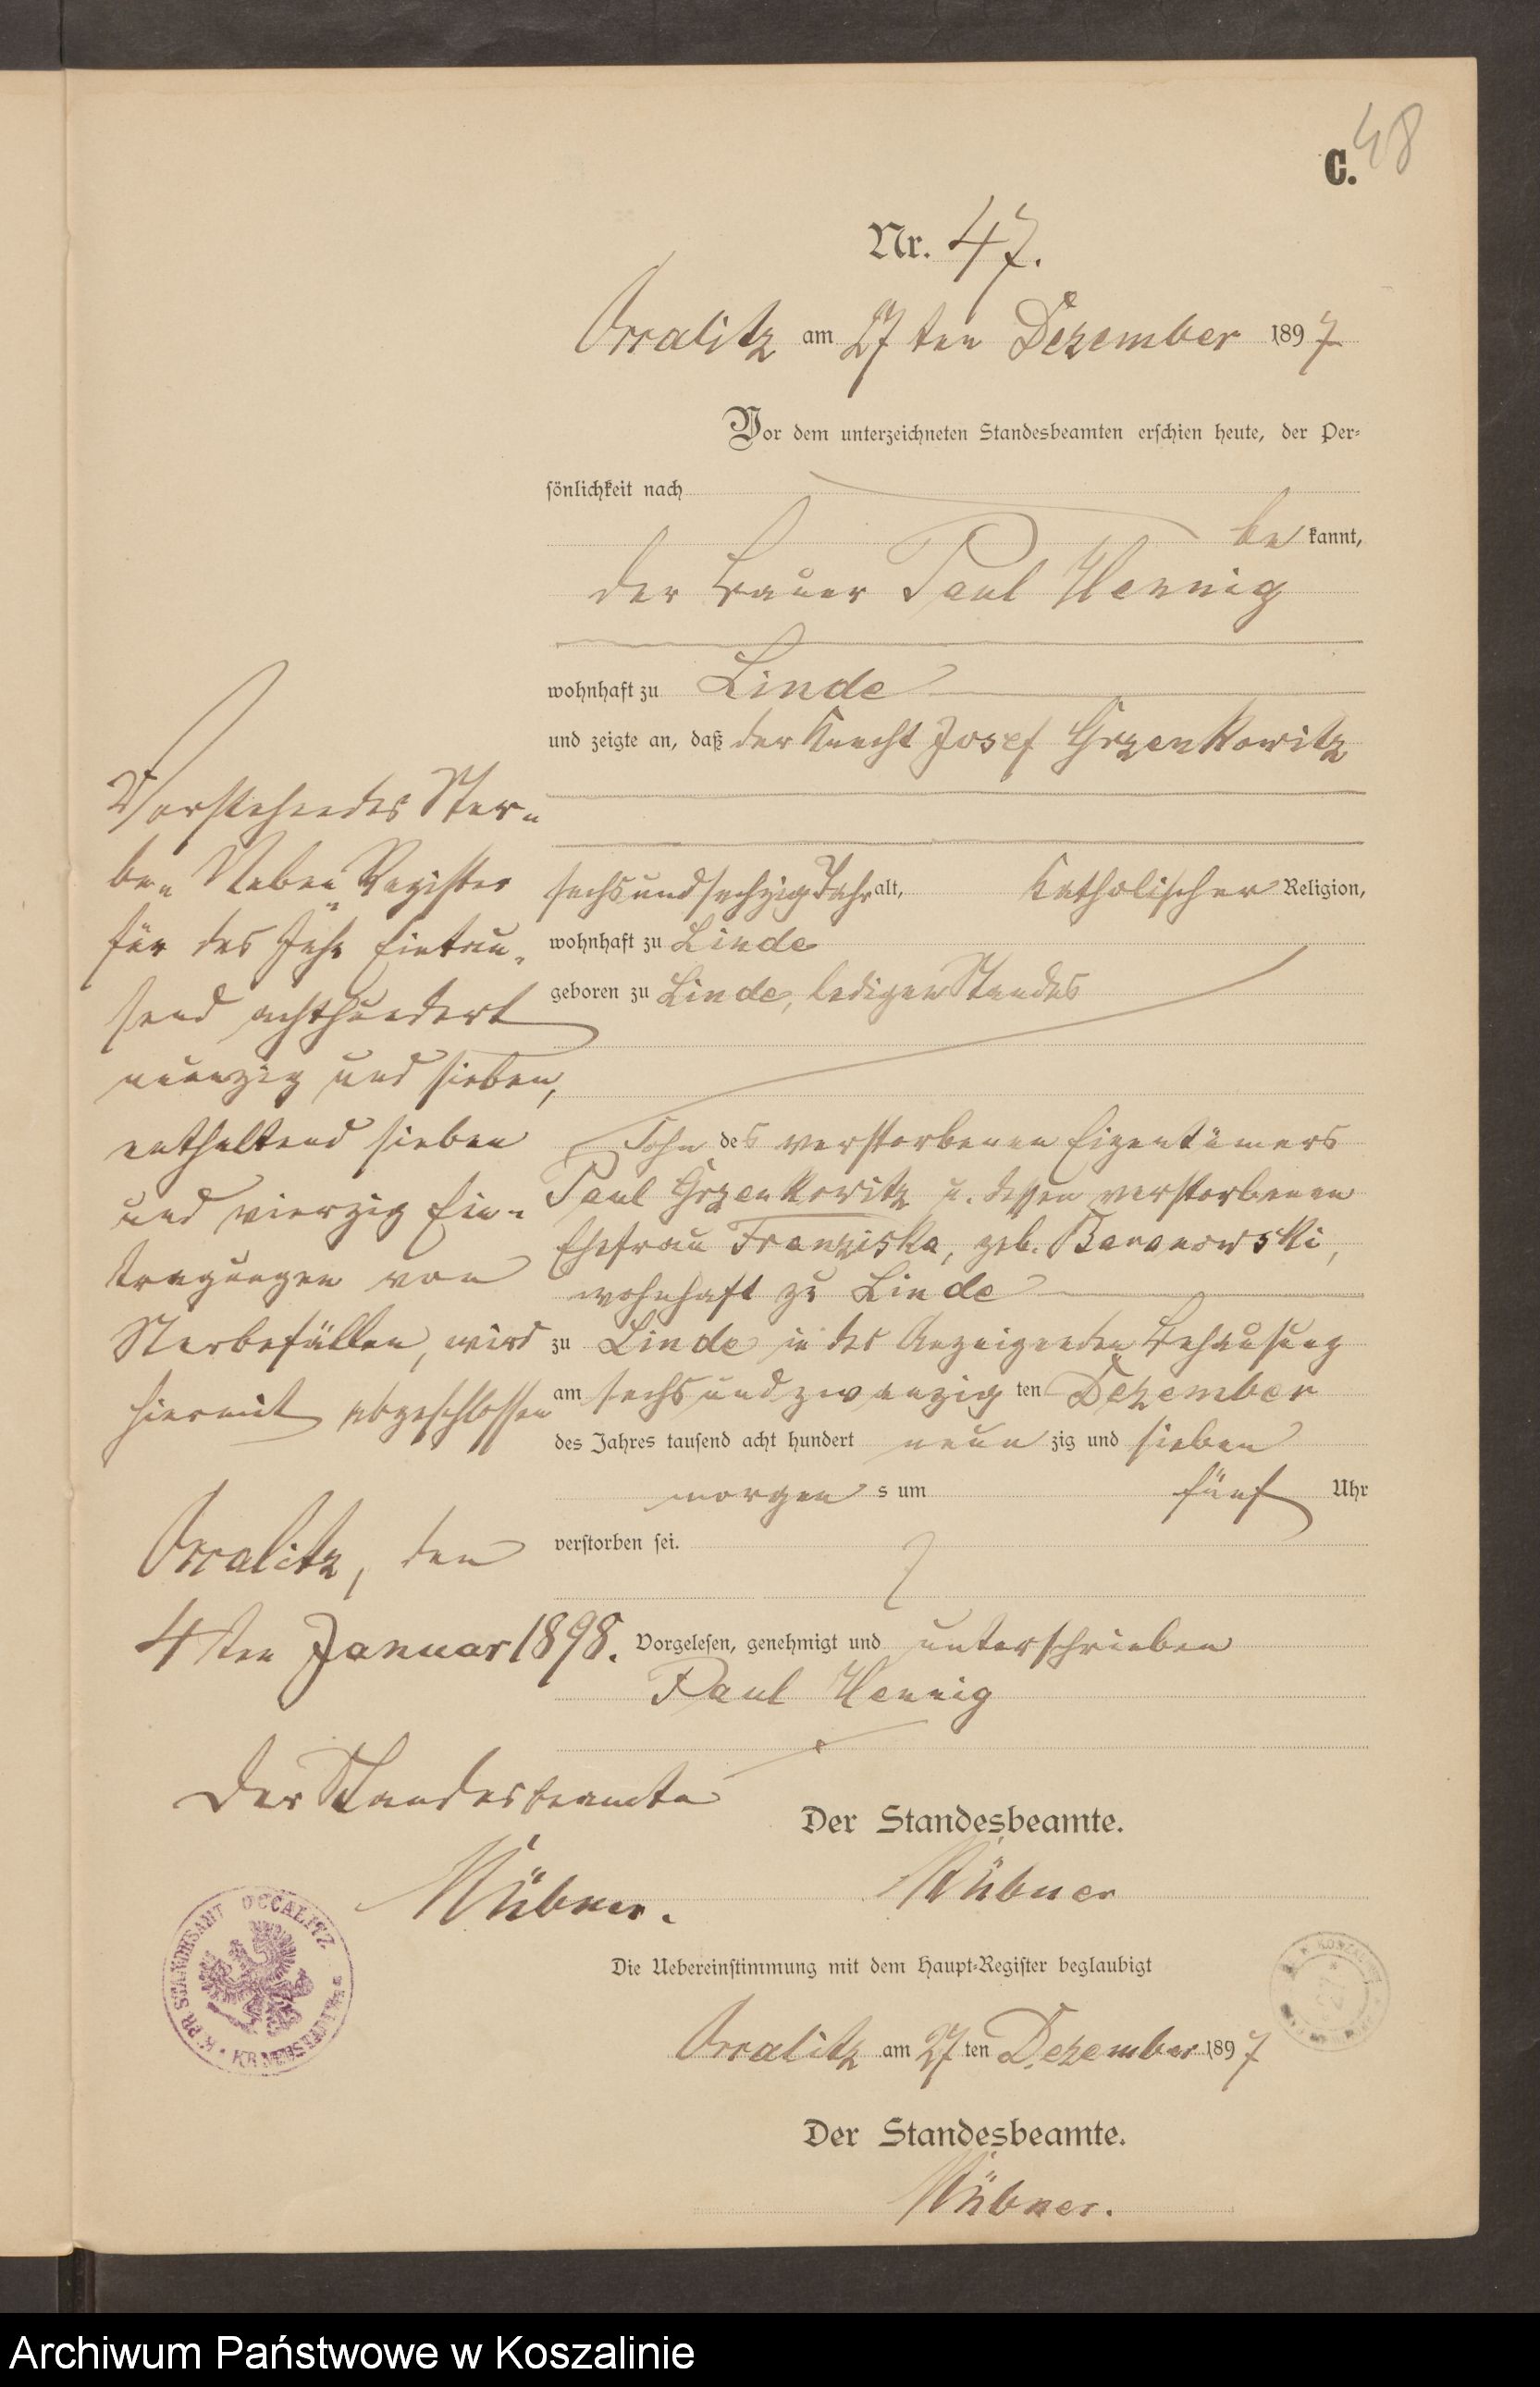 C. 48
Nr. 47.
Occalitz am 27 ten Dezember 1897
Vor dem unterzeichneten Standesbeamten erschien heute, der Per-
sönlichkeit nach
be kannt,
der Bauer Paul Hennig
wohnhaft zu Linde
und zeigte an, daß der Knecht Josef Grzenkowitz
sechsundsechzig Jahr alt, katholischer Religion,
wohnhaft zu Linde
geboren zu Linde, ledigen Standes
Sohn des verstorbenen Eigentümers
Paul Grzenkowitz u. dessen verstorbenen
Ehefrau Franziska, geb. Baranowski,
wohnhaft zu Linde
zu Linde in des Anzeigenden Behausung
am sechsundzwanzig ten Dezember
des Jahres tausend acht hundert neun zig und sieben
morgen s um fünf Uhr
verstorben sei.
Vorgelesen, genehmigt und unterschrieben
Paul Hennig
Der Standesbeamte.
Hübner
Die Uebereinstimmung mit dem Haupt-Register beglaubigt
Occalitz am 27 ten Dezember 1897
Der Standesbeamte.
Hübner.
Vorstehendes Ster-
be-Neben-Register
für das Jahr Eintau-
send achthundert
neunzig und sieben,
enthaltend sieben
und vierzig Ein-
tragungen von
Sterbefällen, wird
hiermit abgeschlossen
Occalitz, den
4ten Januar 1898.
Der Standesbeamte
Hübner.
K. PR. STANDESAMT OCCALITZ
Archiwum Państwowe w Koszalinie